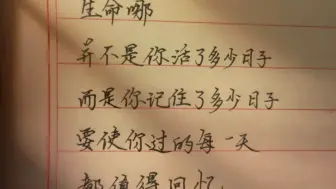 生命哪
并不是你活了多少日子
而是你记住了多少日子
要使你过的每一天
都值得回忆